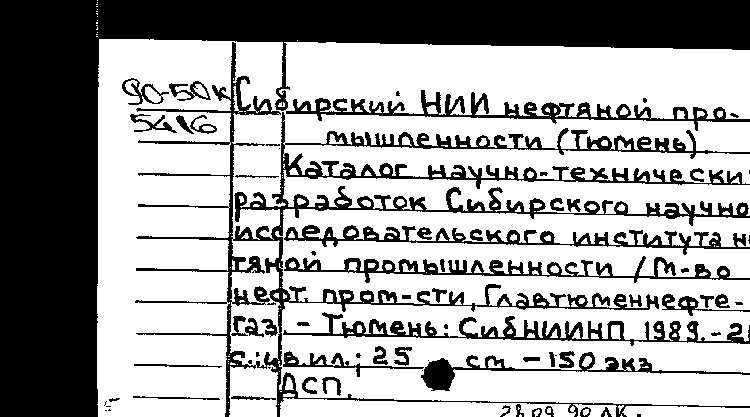 90-50к
5416
Сибирский НИИ нефтяной про-
мышленности (Тюмень).
Каталог научно-технически
разработок Сибирского научно
исследовательского института н
тяной промышленности / М-во
нефт. пром-сти, Главтюменнефте-
газ. - Тюмень: СибНИИНП, 1989. - 2
с.: цв. ил.; 25 см. - 150 экз.
ДСП.
28.09.90 ЛК.